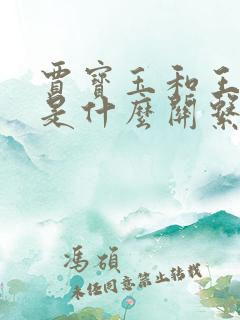 賈寶玉和王
是什麼關繫
馮碩
未經同意禁止轉載